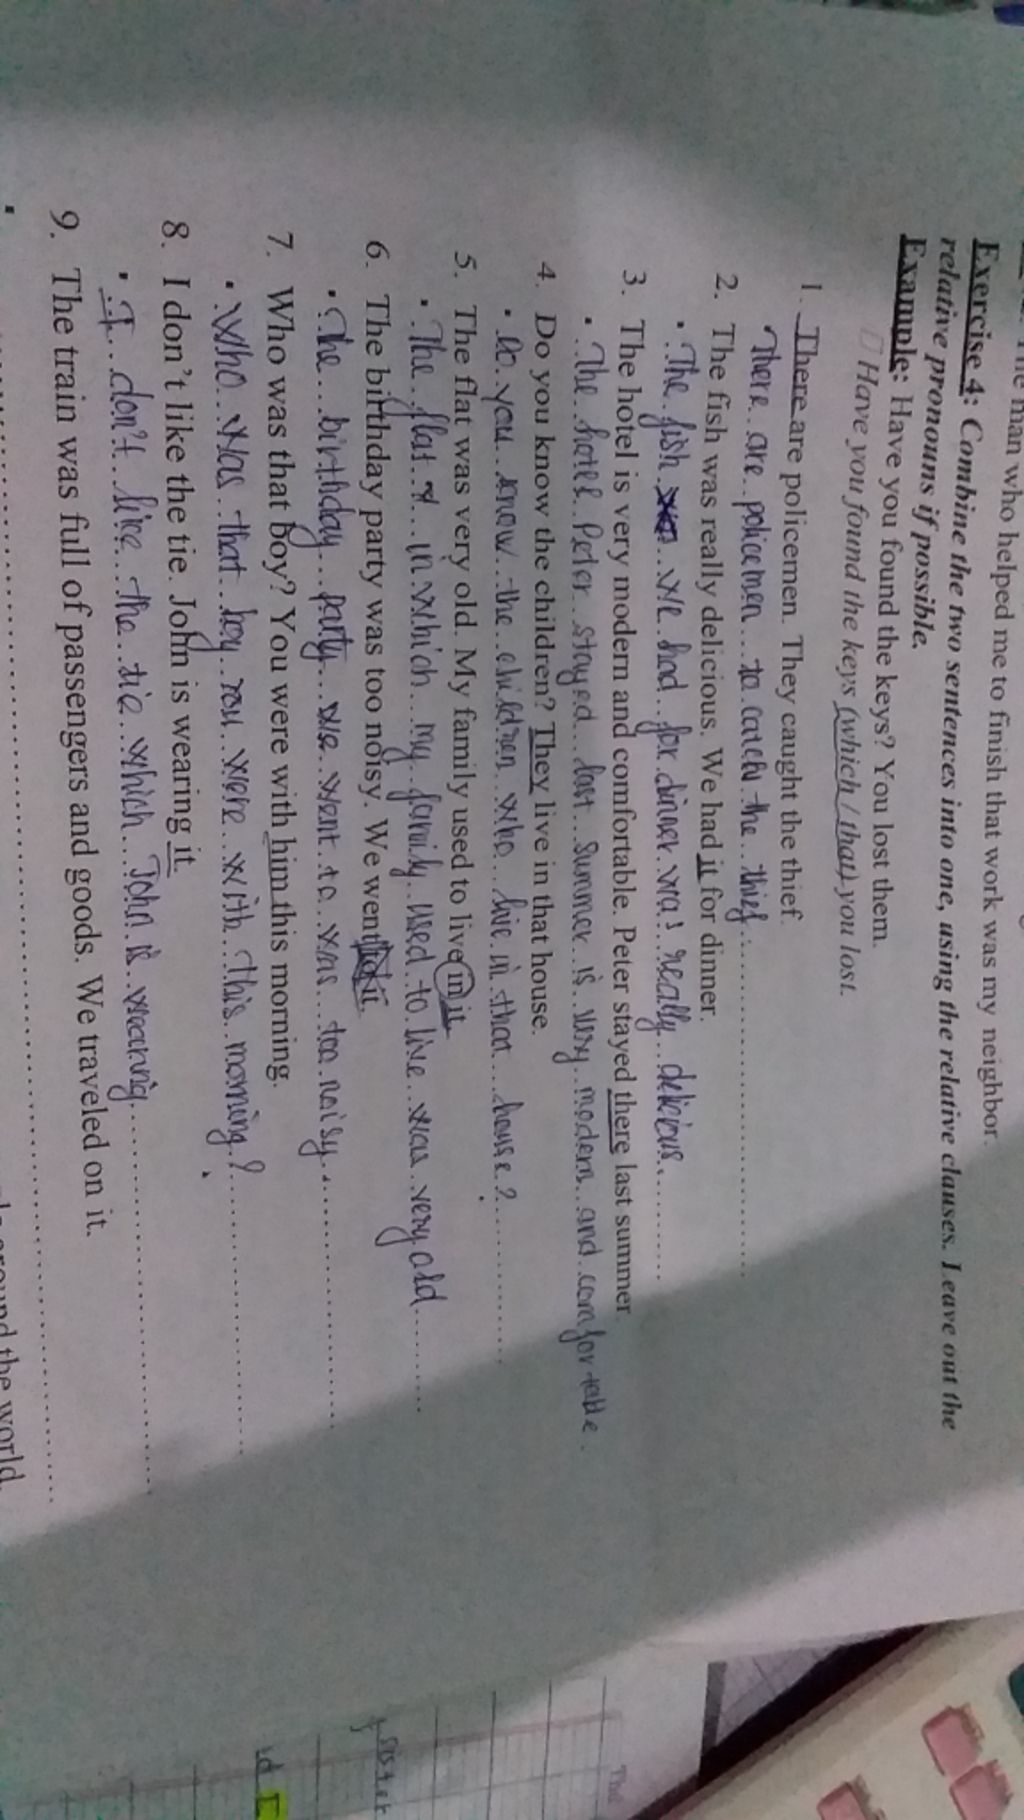 man who helped me to finish that work was my neighbor.
Exercise 4: Combine the two sentences into one, using the relative clauses. Leave out the
relative pronouns if possible.
Example: Have you found the keys? You lost them.
Have you found the keys (which / that) you lost.
1. There are policemen. They caught the thief.
There are policemen to catch the thief
2. The fish was really delicious. We had it for dinner.
The fish we had for dinner was really delicious.
3. The hotel is very modern and comfortable. Peter stayed there last summer
The hotel Peter stayed last summer is very modern and comfortable.
4. Do you know the children? They live in that house.
Do you know the children who live in that house?
5. The flat was very old. My family used to live in it
The flat in which my family used to live was very old
6. The birthday party was too noisy. We went it.
The birthday party we went to was too noisy.
7. Who was that boy? You were with him this morning.
Who was that boy you were with this morning?
8. I don't like the tie. John is wearing it.
I don't like the tie which John is wearing.
9. The train was full of passengers and goods. We traveled on it.
around the world.
sister